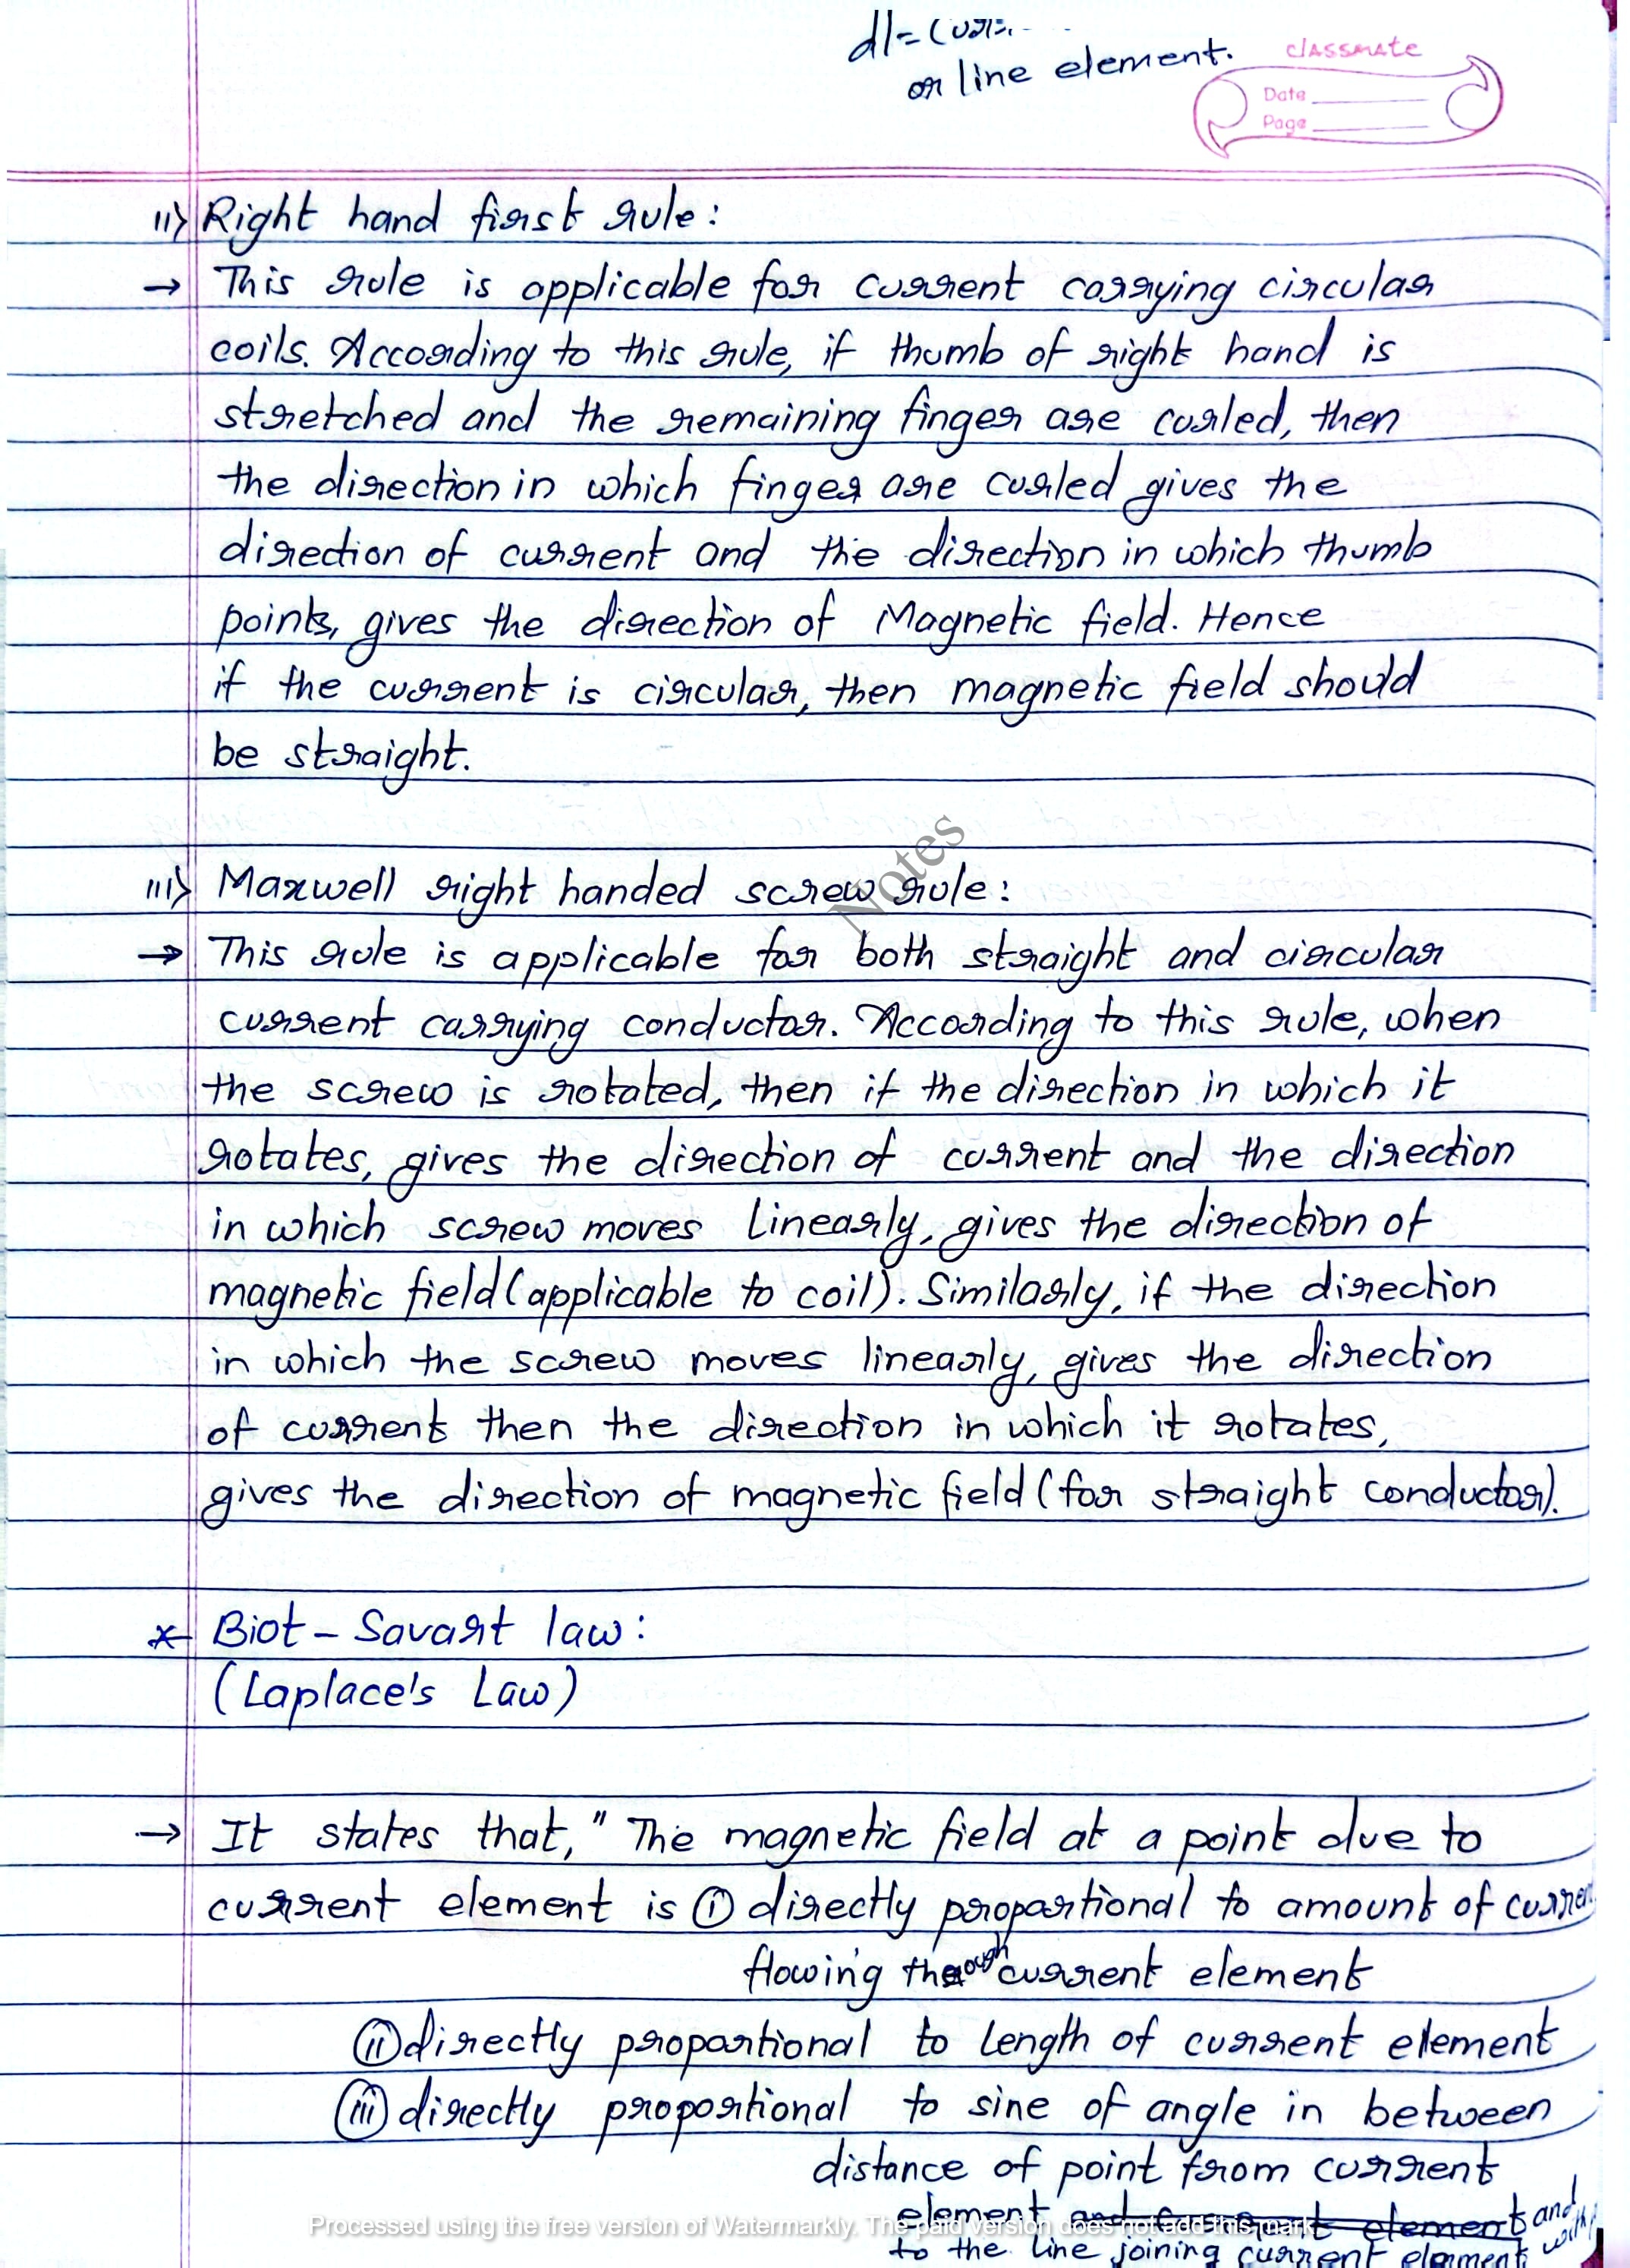 dl=
or line element.
classmate
Date
Page
ii) Right hand first rule:
→ This rule is applicable for current carrying circular
coils. According to this rule, if thumb of right hand is
stretched and the remaining finger are curled, then
the direction in which finger are curled gives the
direction of current and the direction in which thumb
points, gives the direction of Magnetic field. Hence
if the current is circular, then magnetic field should
be straight.
Notes
iii) Maxwell right handed screw rule:
→ This rule is applicable for both straight and circular
current carrying conductor. According to this rule, when
the screw is rotated, then if the direction in which it
rotates, gives the direction of current and the direction
in which screw moves linearly, gives the direction of
magnetic field (applicable to coil). Similarly, if the direction
in which the screw moves linearly, gives the direction
of current then the direction in which it rotates,
gives the direction of magnetic field (for straight conductor).
* Biot-Savart law:
(Laplace's Law)
→ It states that, " The magnetic field at a point due to
current element is (i) directly proportional to amount of current
flowing through current element
(ii) directly proportional to length of current element
(iii) directly proportional to sine of angle in between
distance of point from current
element and current element and
to the line joining current element with
Processed using the free version of Watermarkly. The paid version does not add this mark.